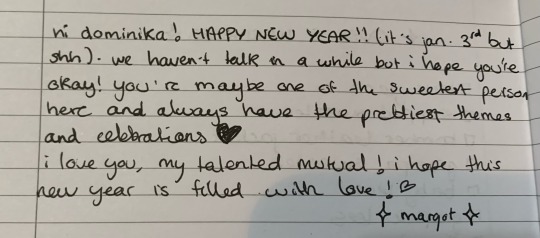 hi dominika! HAPPY NEW YEAR!! (it's jan. 3rd but
shh). we haven't talk in a while but i hope you're
okay! you're maybe one of the sweetest person
here and always have the prettiest themes
and celebrations ♥
i love you, my talented mutual! i hope this
new year is filled with love! ♡
✧ margot ✧